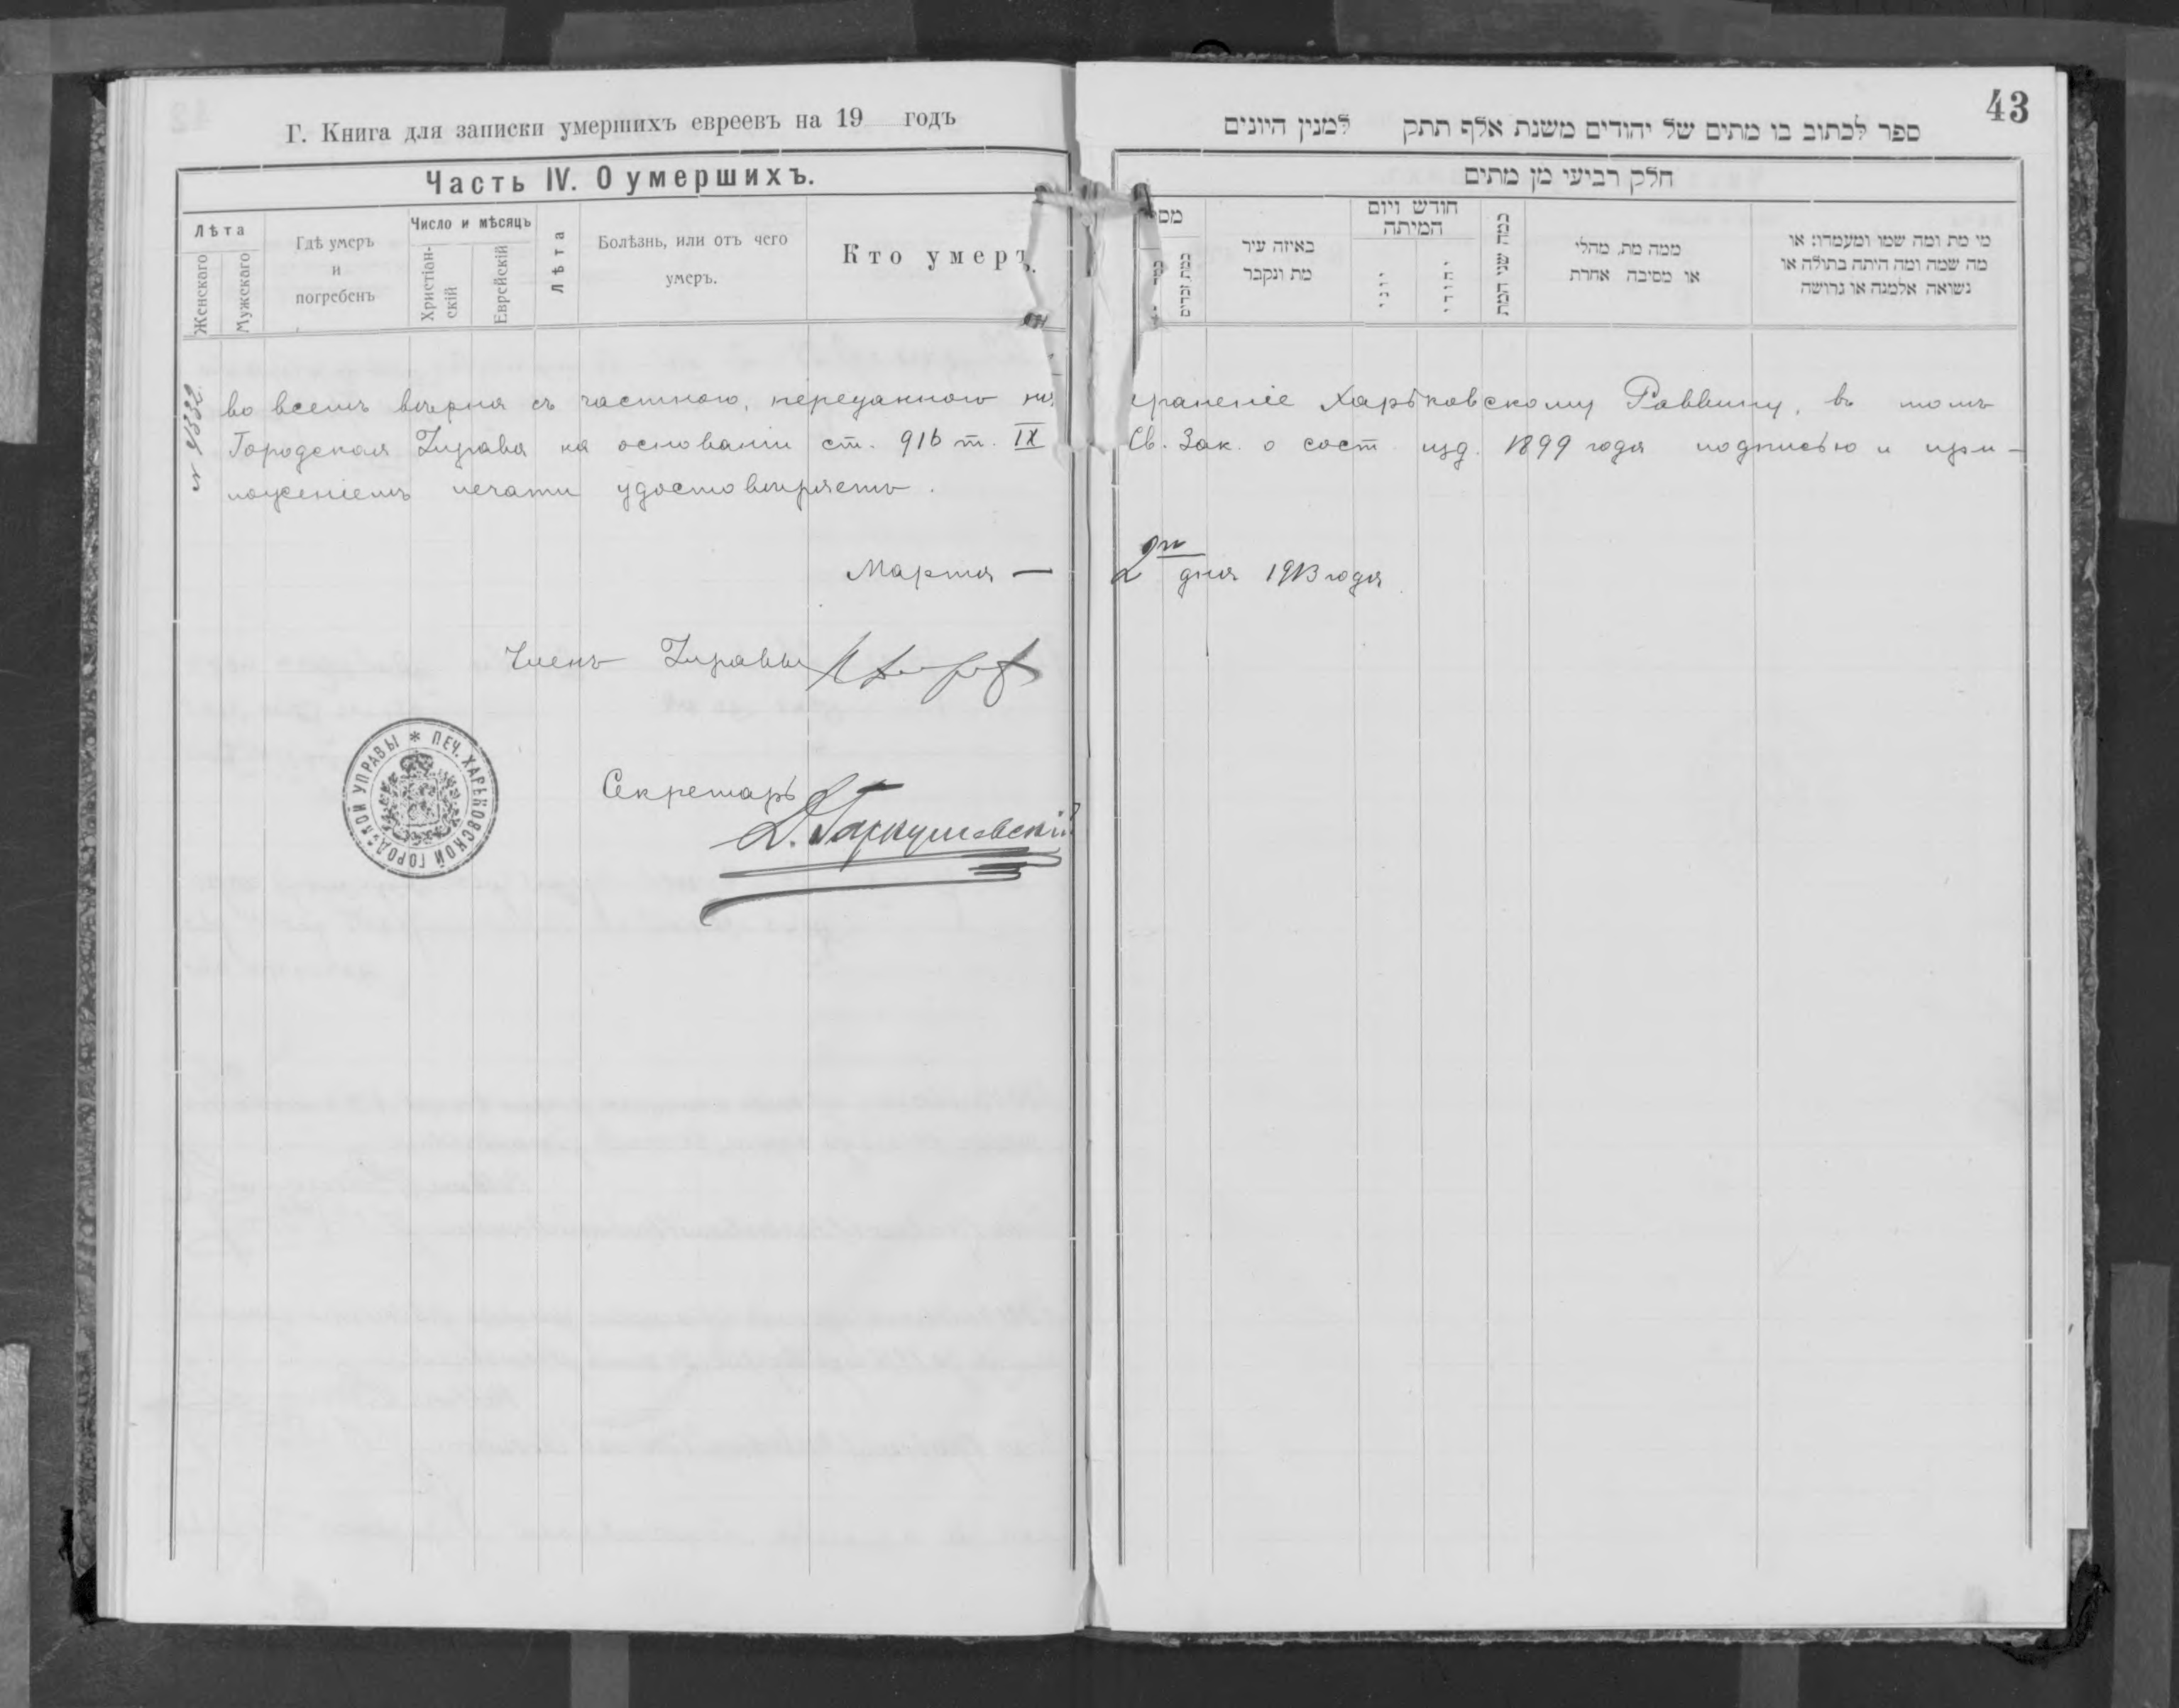 43
Г. Книга для записки умершихъ евреевъ на 19 годъ
ספר לכתוב בו מתים של יהודים משנת אלף תתק למנין היונים
Часть IV. О умершихъ.
חלק רביעי מן מתים
Лѣта
Женскаго
Мужскаго
Гдѣ умеръ
и
погребенъ
Число и мѣсяцъ
Христіан-
скій
Еврейскій
Лѣта
Болѣзнь, или отъ чего
умеръ.
Кто умеръ.
מס
כמה זכרים
באיזה עיר
מת ונקבר
חודש ויום
המיתה
יוני
יהודי
כמה שני המת
ממה מת, מחלי
או מסיבה אחרת
מי מת ומה שמו ומעמדו: או
מה שמה ומה היתה בתולה או
נשואה אלמנה או גרושה
во всемъ вѣрна съ частною, переданною на храненіе Харьковскому Раввину, въ томъ
Городская Управа на основаніи ст. 916 т. IX Св. Зак. о сост изд. 1899 года подписью и при-
ложеніемъ печати удостовѣряетъ.
Марта — 2 дня 1913 года
Членъ Управы
ПЕЧ. ХАРЬКОВСКОЙ ГОРОДСКОЙ УПРАВЫ
Секретарь